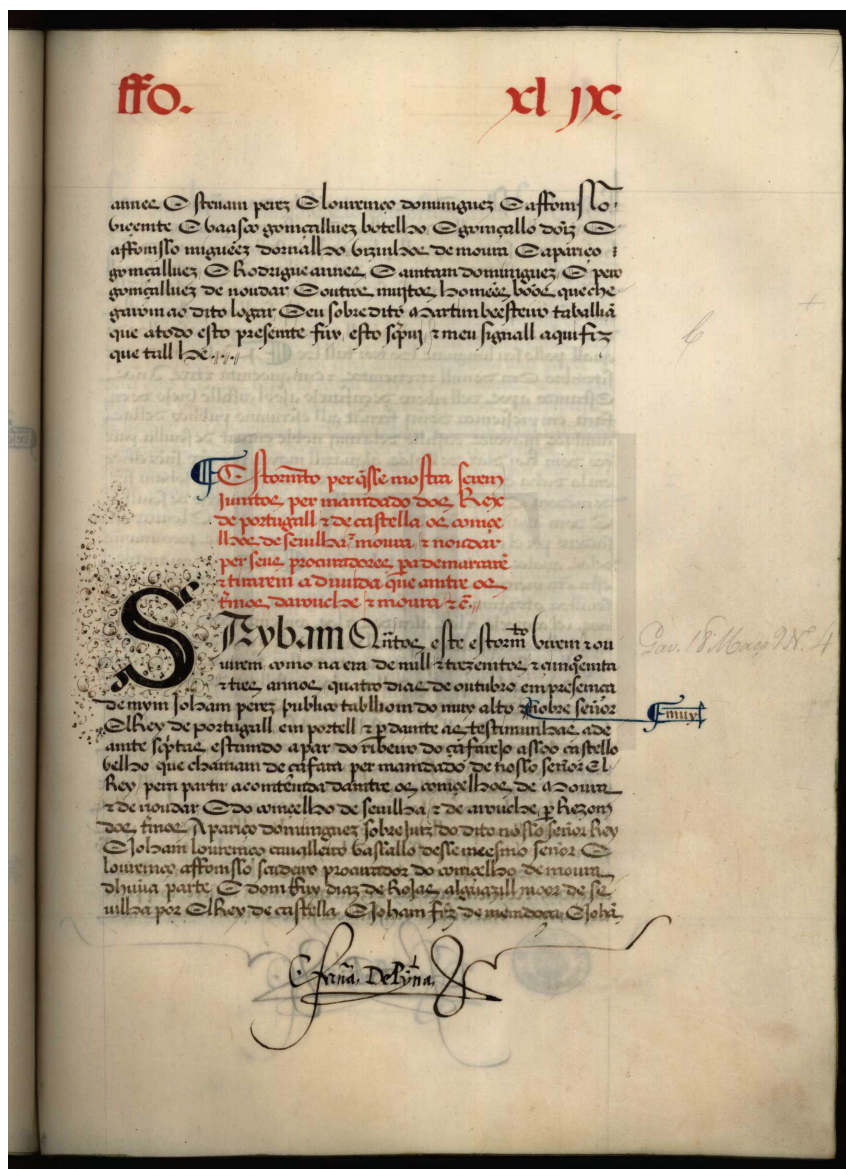 ffo. xl jx.
annes E stevam perez E lourenço dominguez E affomsso
viçemte E vaasco gomçallvez botelho E gomçallo doiz E
affomsso migueez dornalho vizinhos de moura E apariço
gomçallvez E Rodrigue annes E amtam dominguez E pero
gomçallvez de noudar E outros muytos homees boos que che
garom ao dito logar E eu sobre dito martim beesteiro taballiã
que a todo esto presemte fuy esto scpvi ⁊ meu signall aqui fiz
que tall he
Estormto per qsse mostra serem
Jumtos per mamdado dos Rex
de portugall ⁊ de castella os comçe
lhos de sevilha ⁊ moura ⁊ noudar
per seus procuradores pa demarcarē
⁊ tirarem a duvida que amtre os
tmos darouche ⁊ moura ⁊ c̃.
SAybam Qntos este estormto virem ⁊ ou
virem como na era de mill ⁊ trezemtos ⁊ çimqoemta
⁊ tres annos quatro dias de outubro em presemça
de mym Joham perez publico tabliom do muy alto ⁊ nobre señor
muy
ElRey de portugall em portell ⁊ p dante as testimunhas a de
amte scptas estamdo a par do ribeiro do çafarejo a ssoo castello
velho que chamam de çafara per mamdado de nosso señor El
Rey pera partir a comtēmda damtre os comçelhos de moura
⁊ de noudar E do comcelho de sevilha ⁊ de arouche p Rezom
dos tmos Apariço dominguez sobre juiz do dito nosso señor Rey
E Joham louremço cavalleiro vassallo desse meesmo señor E
louremço affomsso procurador do comçelho de moura
dhuũa parte E dom Ruy diaz de Rojas alguazill moor de se
vilha por ElRey de castella E Joham frz de memdoça E Johã
Gav. 18 Maço 9 N. 4
fernã. De Pyna.